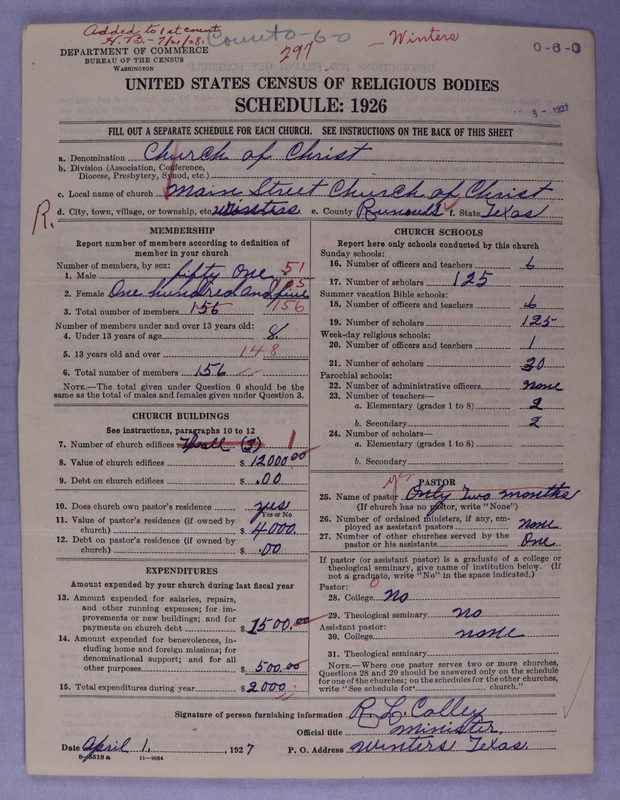 Added to 1st count
H.B. - 7/21/28.
Count 0-6-0
297
- Winters
0-6-0
DEPARTMENT OF COMMERCE
BUREAU OF THE CENSUS
WASHINGTON
1927
UNITED STATES CENSUS OF RELIGIOUS BODIES
SCHEDULE: 1926
FILL OUT A SEPARATE SCHEDULE FOR EACH CHURCH. SEE INSTRUCTIONS ON THE BACK OF THIS SHEET
a. Denomination Church of Christ
b. Division (Association, Conference, Diocese, Presbytery, Synod, etc.)
c. Local name of church Main Street Church of Christ
R. d. City, town, village, or township, etc. Winters e. County Runnels f. State Texas
MEMBERSHIP
Report number of members according to definition of
member in your church
Number of members, by sex:
1. Male fifty one 51
2. Female One hundred and five 105
3. Total number of members 156 156
Number of members under and over 13 years old:
4. Under 13 years of age 8.
5. 13 years old and over 148
6. Total number of members 156
NOTE.—The total given under Question 6 should be
same as the total of males and females given under Question 3.
CHURCH BUILDINGS
See instructions, paragraphs 10 to 12
7. Number of church edifices (3) 1
8. Value of church edifices $ 12000.00
9. Debt on church edifices $ .00
10. Does church own pastor's residence yes
Yes or No
11. Value of pastor's residence (if owned by
church) $ 4000.
12. Debt on pastor's residence (if owned by
church) $ .00
EXPENDITURES
Amount expended by your church during last fiscal year
13. Amount expended for salaries, repairs,
and other running expenses; for im-
provements or new buildings; and for
payments on church debt $ 1500.00
14. Amount expended for benevolences, in-
cluding home and foreign missions; for
denominational support; and for all
other purposes $ 500.00
15. Total expenditures during year $ 2000
CHURCH SCHOOLS
Report here only schools conducted by this church
Sunday schools:
16. Number of officers and teachers 6
17. Number of scholars 125
Summer vacation Bible schools:
18. Number of officers and teachers 6
19. Number of scholars 125
Week-day religious schools:
20. Number of officers and teachers 1
21. Number of scholars 30
Parochial schools:
22. Number of administrative officers none
23. Number of teachers—
a. Elementary (grades 1 to 8) 2
b. Secondary 2
24. Number of scholars—
a. Elementary (grades 1 to 8)
b. Secondary
PASTOR
25. Name of pastor Only Two months
(If church has no pastor, write "None")
26. Number of ordained ministers, if any, em-
ployed as assistant pastors none
27. Number of other churches served by the
pastor or his assistants One
If pastor (or assistant pastor) is a graduate of a college or
theological seminary, give name of institution below. (If
not a graduate, write "No" in the space indicated.)
Pastor:
28. College No
29. Theological seminary No
Assistant pastor:
30. College none
31. Theological seminary
NOTE.—Where one pastor serves two or more churches,
Questions 28 and 29 should be answered only on the schedule
for one of the churches; on the schedules for the other churches,
write "See schedule for church."
Signature of person furnishing information R L Colley
Official title minister.
Date April 1. , 1927 P. O. Address Winters Texas
8-5513 a 11-9054